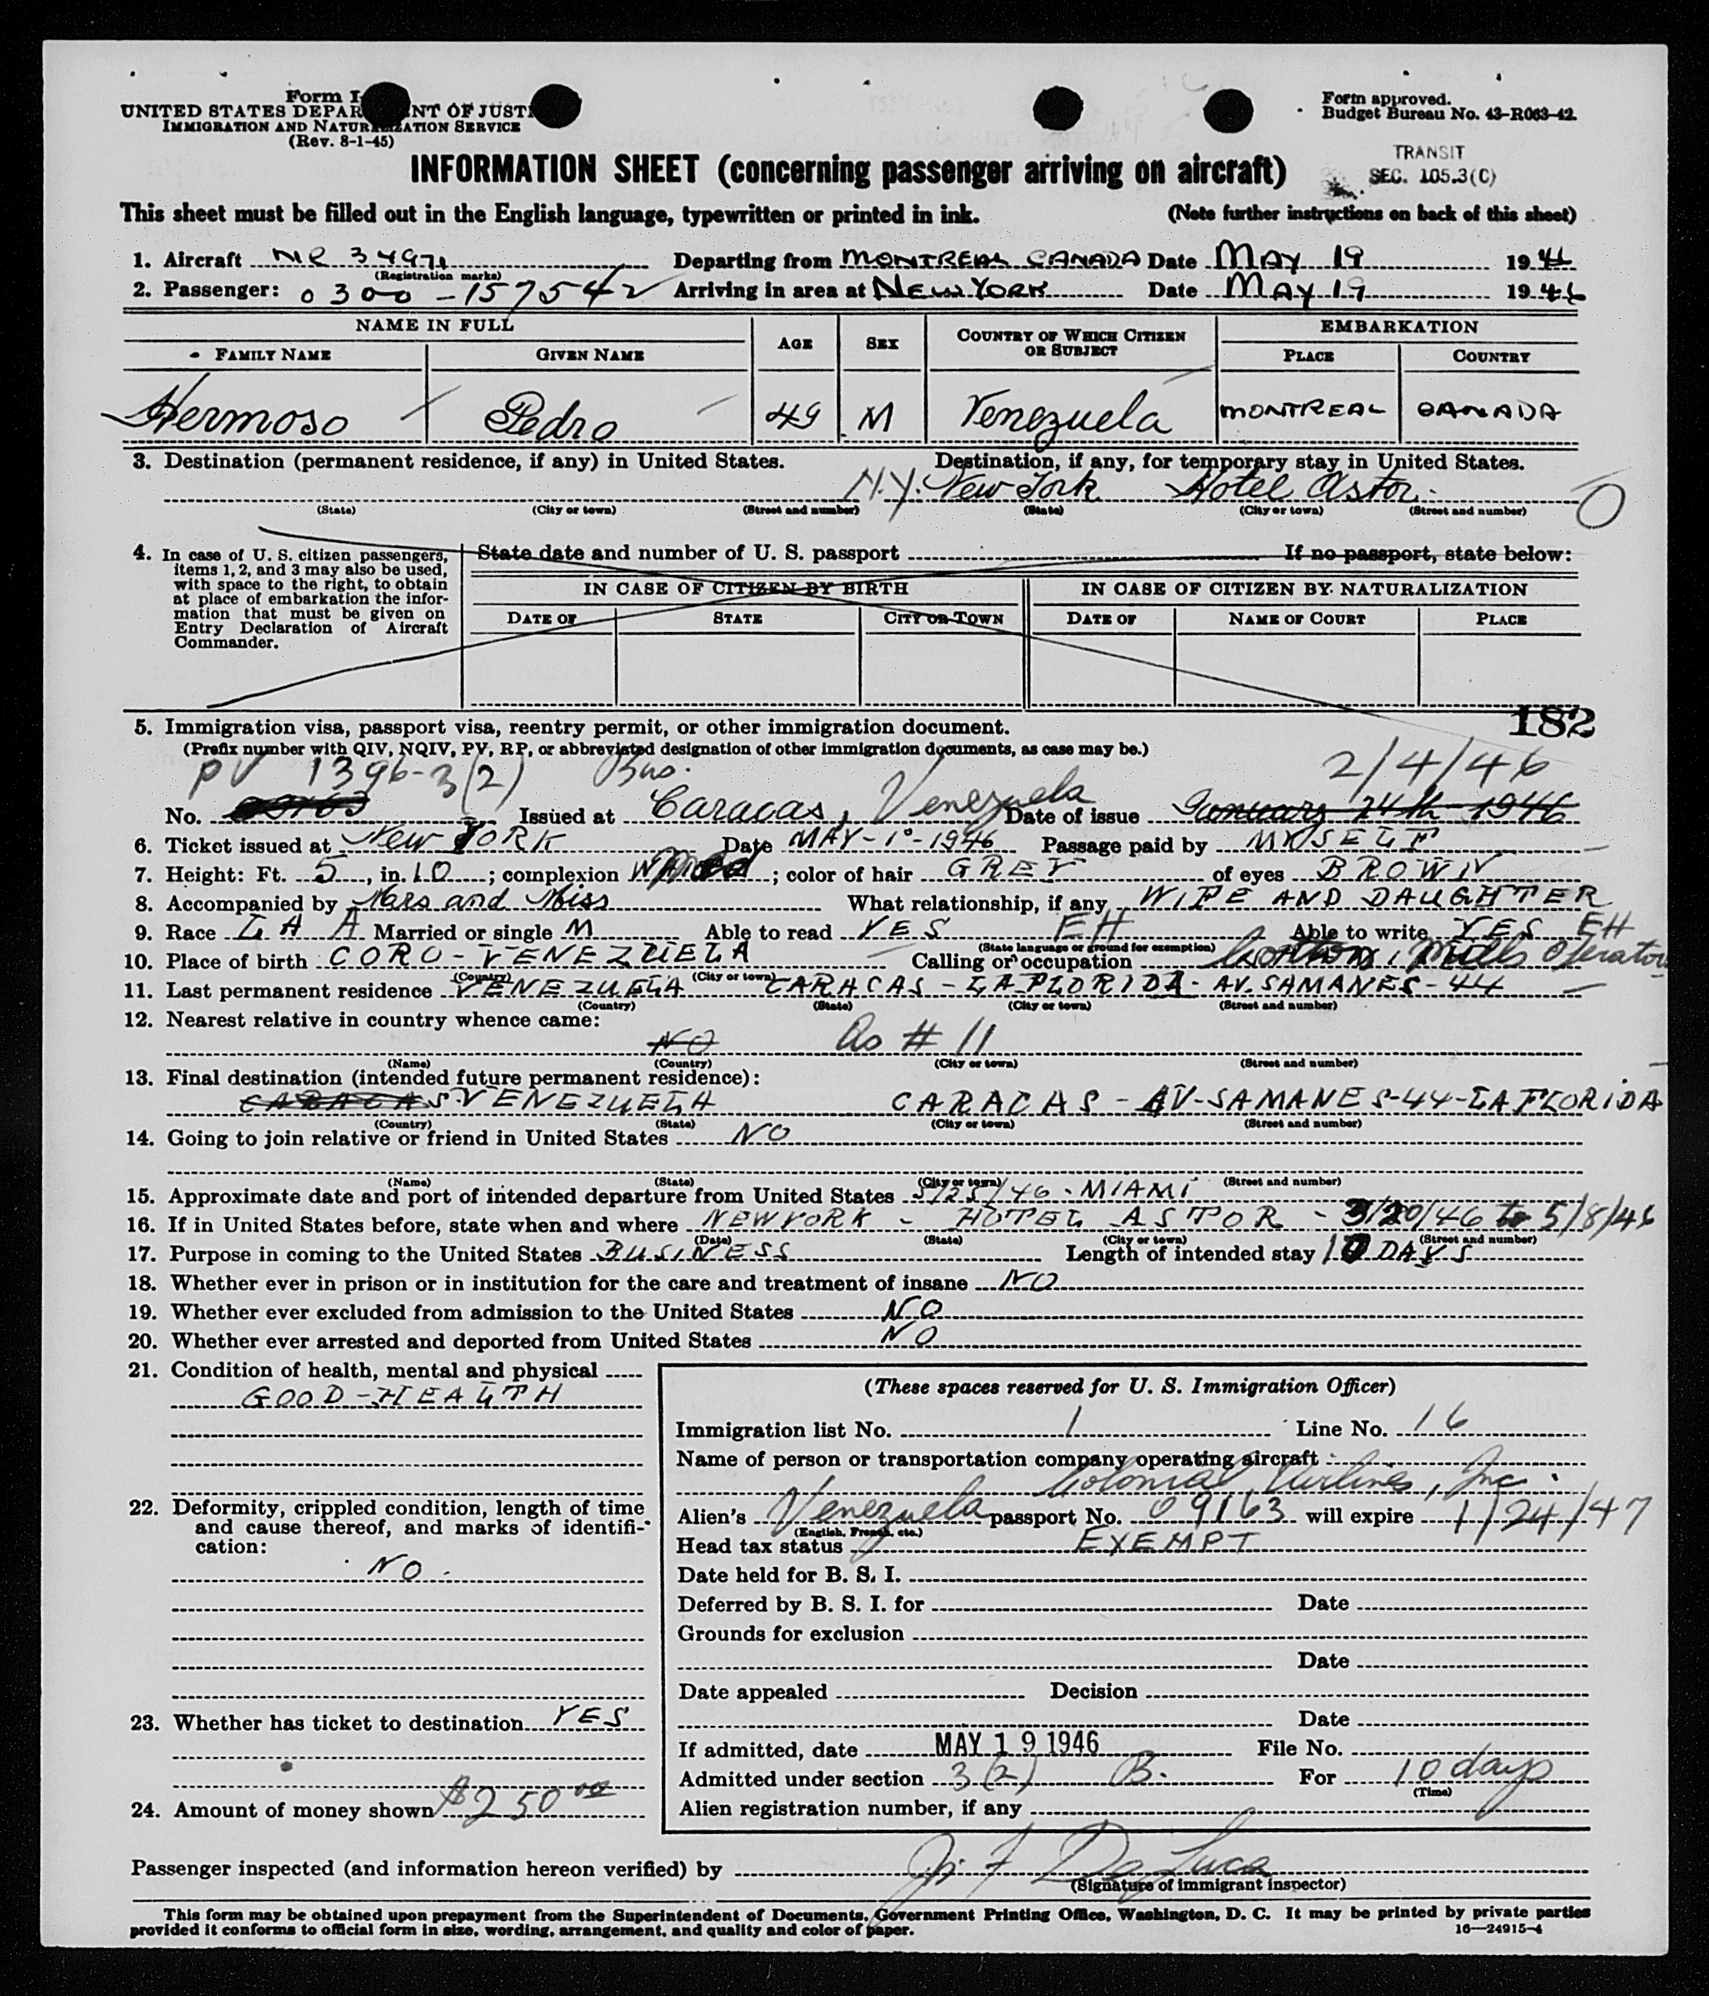 Form I-
UNITED STATES DEPAR NT OF JUSTI
IMMIGRATION AND NATURALIZATION SERVICE
(Rev. 8-1-45)
Form approved.
Budget Bureau No. 43-R063-42.
TRANSIT
SEC. 105.3(C)
INFORMATION SHEET (concerning passenger arriving on aircraft)
This sheet must be filled out in the English language, typewritten or printed in ink. (Note further instructions on back of this sheet)
1. Aircraft NR 34971 Departing from MONTREAL CANADA Date MAY 19 1946
(Registration marks)
2. Passenger: 0300-157542 Arriving in area at NEW YORK Date MAY 19 1946
NAME IN FULL AGE SEX COUNTRY OF WHICH CITIZEN OR SUBJECT EMBARKATION
FAMILY NAME GIVEN NAME PLACE COUNTRY
Hermoso Pedro 49 M Venezuela MONTREAL CANADA
3. Destination (permanent residence, if any) in United States. Destination, if any, for temporary stay in United States.
N.Y. New York Hotel Astor. O
(State) (City or town) (Street and number) (State) (City or town) (Street and number)
4. In case of U. S. citizen passengers, items 1, 2, and 3 may also be used, with space to the right, to obtain at place of embarkation the information that must be given on Entry Declaration of Aircraft Commander.
State date and number of U. S. passport If no passport, state below:
IN CASE OF CITIZEN BY BIRTH IN CASE OF CITIZEN BY NATURALIZATION
DATE OF STATE CITY OR TOWN DATE OF NAME OF COURT PLACE
182
5. Immigration visa, passport visa, reentry permit, or other immigration document.
(Prefix number with QIV, NQIV, PV, RP, or abbreviated designation of other immigration documents, as case may be.)
PV 1396-3(2) Bus. 2/4/46
No. Issued at Caracas, Venezuela Date of issue January 24th 1946
6. Ticket issued at New YORK Date MAY-1º-1946 Passage paid by MYSELF
7. Height: Ft. 5, in. 10; complexion ; color of hair GREY of eyes BROWN
8. Accompanied by Mrs and Miss What relationship, if any WIFE AND DAUGHTER
9. Race L A A Married or single M Able to read YES EH Able to write YES EH
(State language or ground for exemption)
10. Place of birth CORO-VENEZUELA Calling or occupation Cotton Mills Operator
(Country) (City or town)
11. Last permanent residence VENEZUELA CARACAS-LA FLORIDA-AV. SAMANES-44
(Country) (State) (City or town) (Street and number)
12. Nearest relative in country whence came:
NO As # 11
(Name) (Country) (City or town) (Street and number)
13. Final destination (intended future permanent residence):
CARACAS VENEZUELA CARACAS-AV-SAMANES-44-LA FLORIDA
(Country) (State) (City or town) (Street and number)
14. Going to join relative or friend in United States NO
(Name) (State) (City or town) (Street and number)
15. Approximate date and port of intended departure from United States 5/25/46-MIAMI
16. If in United States before, state when and where NEW YORK - HOTEL ASTOR - 3/20/46 to 5/8/46
(Date) (State) (City or town) (Street and number)
17. Purpose in coming to the United States BUSINESS Length of intended stay 10 DAYS
18. Whether ever in prison or in institution for the care and treatment of insane NO
19. Whether ever excluded from admission to the United States NO
20. Whether ever arrested and deported from United States NO
21. Condition of health, mental and physical
GOOD-HEALTH
22. Deformity, crippled condition, length of time and cause thereof, and marks of identification:
NO.
23. Whether has ticket to destination YES
24. Amount of money shown $250.00
(These spaces reserved for U. S. Immigration Officer)
Immigration list No. 1 Line No. 16
Name of person or transportation company operating aircraft
Colonial Airlines, Inc.
Alien's Venezuela passport No. 09163 will expire 1/24/47
(English, French, etc.)
Head tax status EXEMPT
Date held for B. S. I.
Deferred by B. S. I. for Date
Grounds for exclusion
Date
Date appealed Decision
Date
If admitted, date MAY 19 1946 File No.
Admitted under section 3(2) B. For 10 days
(Time)
Alien registration number, if any
Passenger inspected (and information hereon verified) by
(Signature of immigrant inspector)
This form may be obtained upon prepayment from the Superintendent of Documents, Government Printing Office, Washington, D. C. It may be printed by private parties
provided it conforms to official form in size, wording, arrangement, and quality and color of paper. 16—24915-4